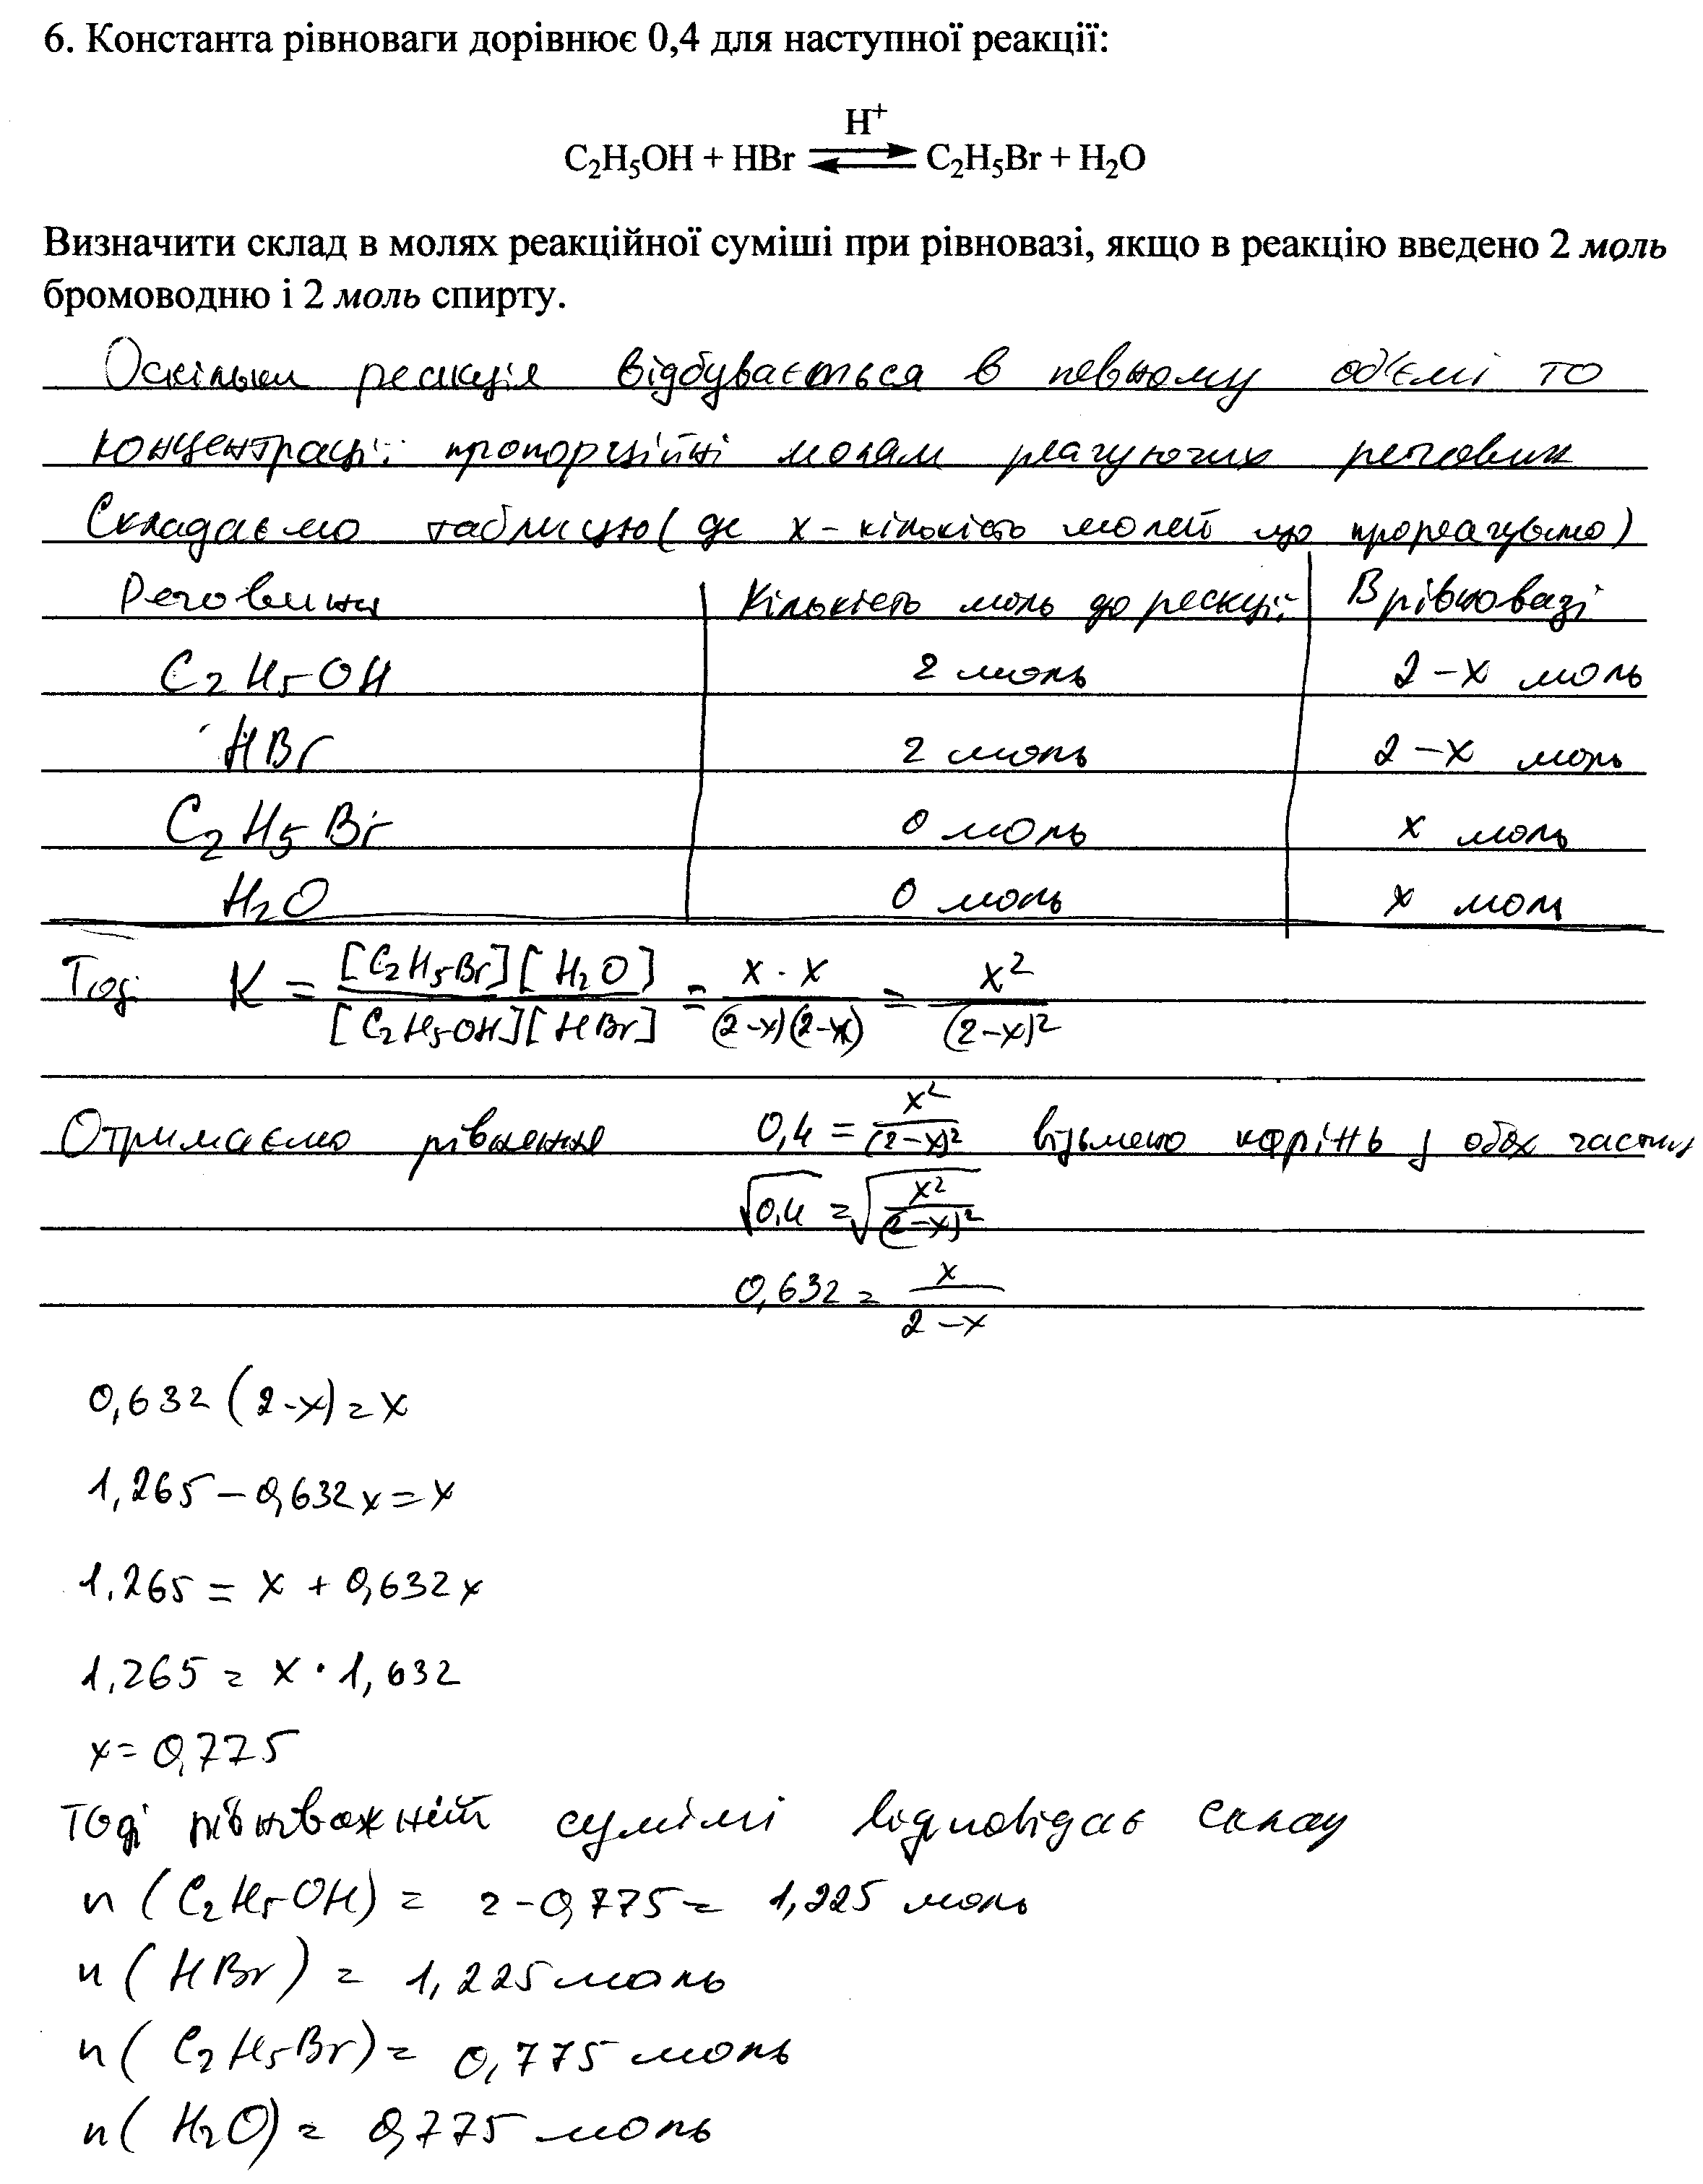 6. Константа рівноваги дорівнює 0,4 для наступної реакції:
H⁺
C₂H₅OH + HBr ⇌ C₂H₅Br + H₂O
Визначити склад в молях реакційної суміші при рівновазі, якщо в реакцію введено 2 моль
бромоводню і 2 моль спирту.
Оскільки реакція відбувається в певному об'ємі то
концентрації пропорційні молям реагуючих речовин
Складаємо таблицю (де x – кількість молей що прореагувало)
Речовини | Кількість моль до реакції | В рівновазі
C₂H₅OH | 2 моль | 2 – x моль
HBr | 2 моль | 2 – x моль
C₂H₅Br | 0 моль | x моль
H₂O | 0 моль | x моль
Тоді K = [C₂H₅Br][H₂O] / [C₂H₅OH][HBr] = x · x / (2–x)(2–x) = x² / (2–x)²
Отримаємо рівняння 0,4 = x² / (2–x)² візьмемо корінь з обох частин
√0,4 = √(x² / (2–x)²)
0,632 = x / 2 – x
0,632 (2-x) = x
1,265 – 0,632x = x
1,265 = x + 0,632x
1,265 = x · 1,632
x = 0,775
Тоді рівноважній суміші відповідає склад
n (C₂H₅OH) = 2 – 0,775 = 1,225 моль
n (HBr) = 1,225 моль
n (C₂H₅Br) = 0,775 моль
n (H₂O) = 0,775 моль